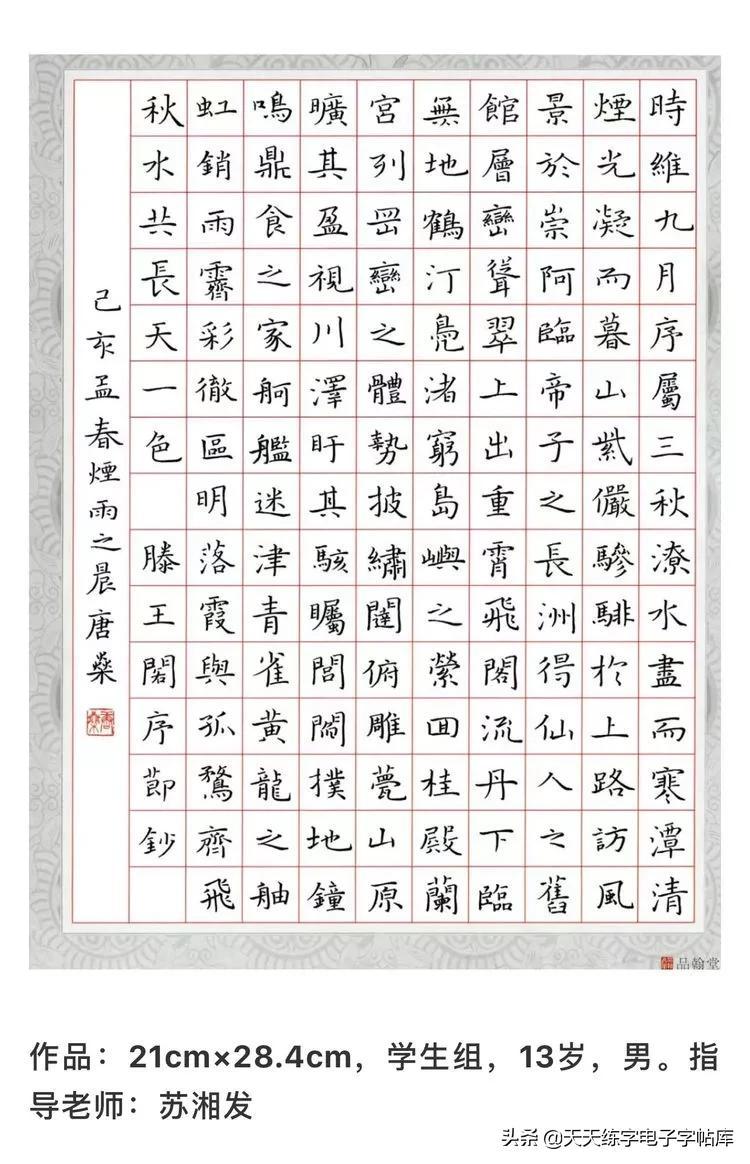 時維九月序屬三秋潦水盡而寒潭清
煙光凝而暮山紫儼驂騑於上路訪風
景於崇阿臨帝子之長洲得仙人之舊
館層巒聳翠上出重霄飛閣流丹下臨
無地鶴汀鳧渚窮島嶼之縈回桂殿蘭
宮列岡巒之體勢披繡闥俯雕甍山原
曠其盈視川澤盱其駭矚閭閻撲地鐘
鳴鼎食之家舸艦迷津青雀黃龍之舳
虹銷雨霽彩徹區明落霞與孤鶩齊飛
秋水共長天一色 滕王閣序節鈔
己亥孟春煙雨之晨唐燊
品翰堂
作品：21cm×28.4cm，学生组，13岁，男。指
导老师：苏湘发
头条 @天天练字电子字帖库